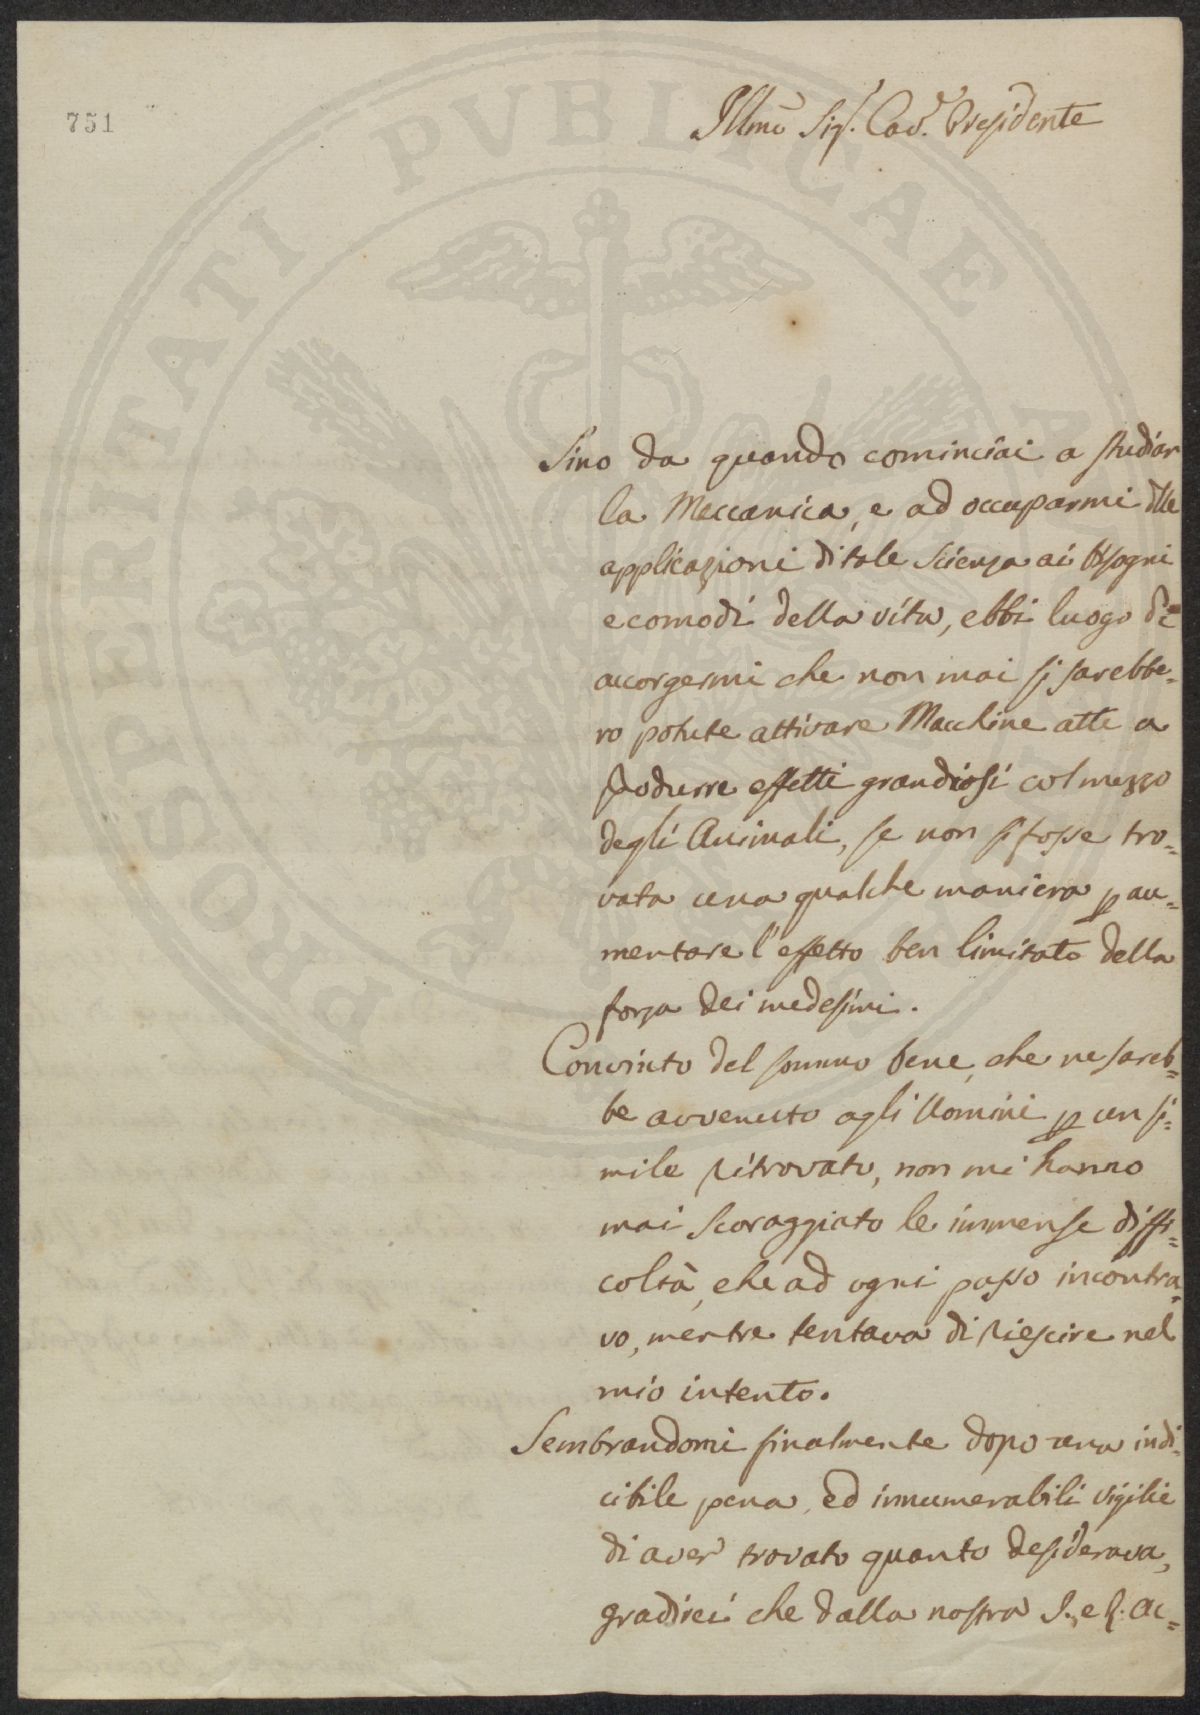 751
Illmo Sig.r Cav.e Presidente
Sino da quando cominciai a studiar
la Meccanica, e ad occuparmi dlle
applicazioni di tale Scienza ai bisogni
e comodi della vita, ebbi luogo di
accorgermi che non mai si sarebbe=
ro potute attivare Macchine atte a
produrre effetti grandiosi col mezzo
degli Animali, se non si fosse tro=
vata una qualche maniera p au=
mentare l'effetto ben limitato della
forza dei medesimi.
Convinto del sommo bene, che ne sareb=
be avvenuto agli Uomini p un si=
mile ritrovato, non mi hanno
mai scoraggiato le immense diffi=
coltà, che ad ogni passo incontra=
vo, mentre tentava di riescire nel
mio intento.
Sembrandomi finalmente dopo una indi=
cibile pena, ed innumerabili vigilie
di aver trovato quanto desiderava,
gradirei che dalla nostra I. e R. Ac=
PROSPERITATI PUBLICAE A